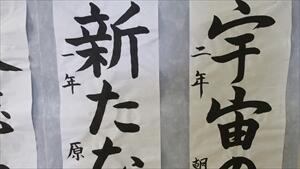 宇宙の
二年
朝
新たな
一年
原